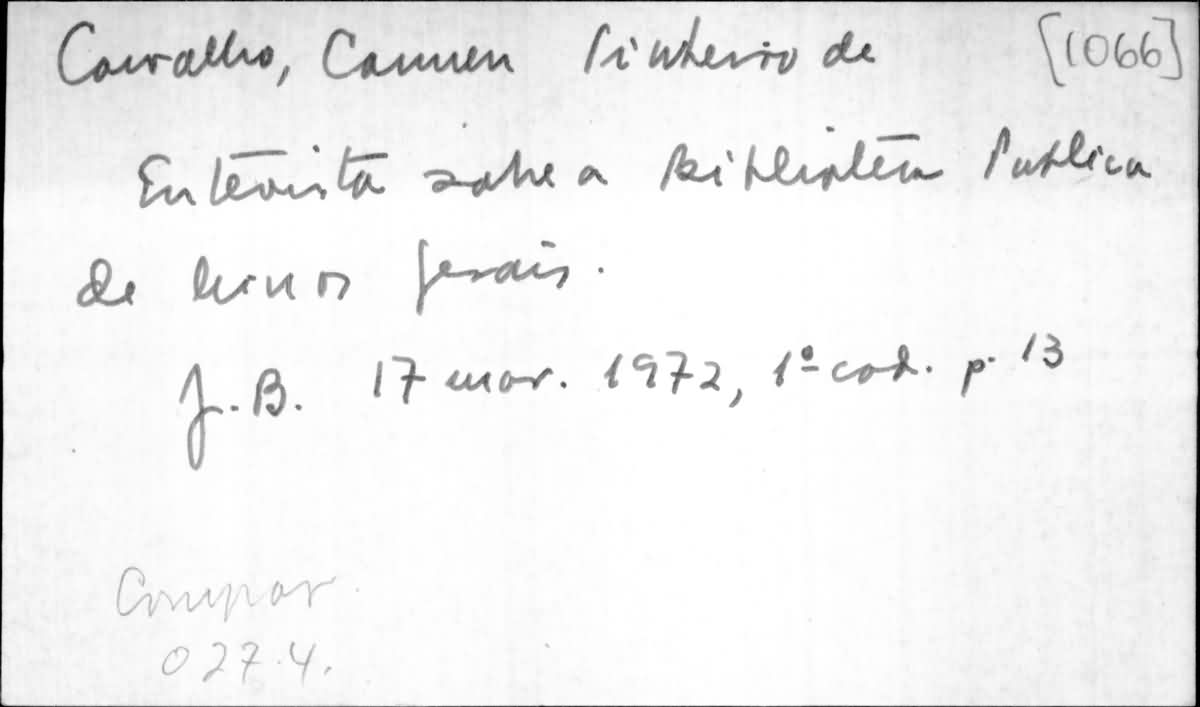 Carvalho, Carmen Pinheiro de [1066]
Entevista sobre a Biblioteca Publica
de Minas Gerais.
J.B. 17 mar. 1972, 1º cad. p. 13
Compar
027.4.